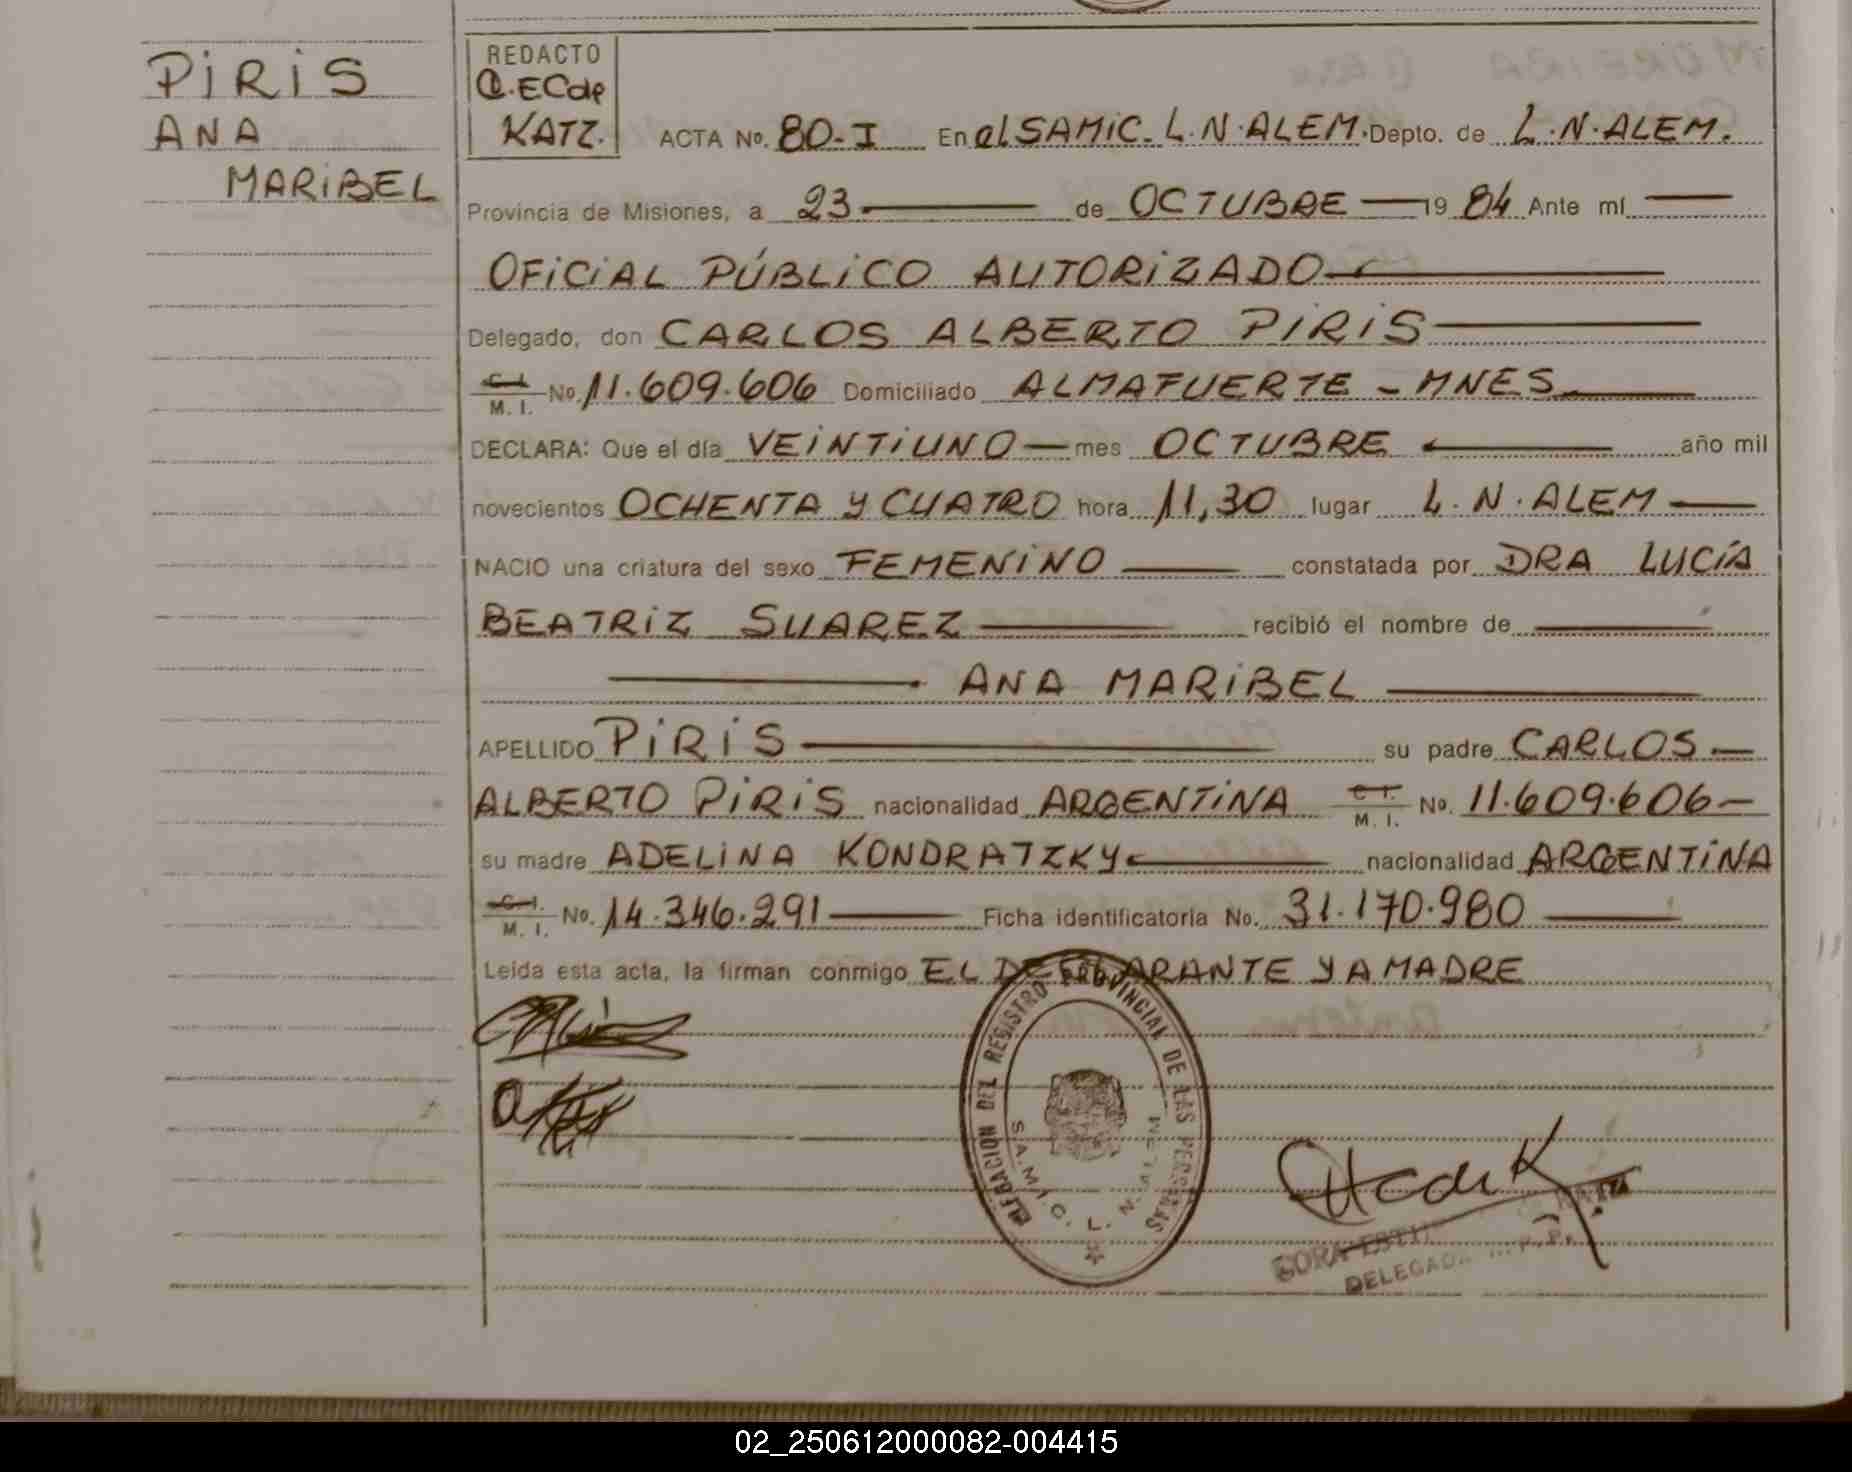 PIRIS
ANA
MARIBEL
REDACTO
KATZ.
ACTA No. 80-I En el SAMIC. L.N.ALEM. Depto. de L.N.ALEM.
Provincia de Misiones, a 23 de OCTUBRE 19 84 Ante mí
OFICIAL PÚBLICO AUTORIZADO
Delegado, don CARLOS ALBERTO PIRIS
C.I. M. I. No. 11.609.606 Domiciliado ALMAFUERTE - MNES
DECLARA: Que el día VEINTIUNO mes OCTUBRE año mil
novecientos OCHENTA Y CUATRO hora 11,30 lugar L.N.ALEM
NACIO una criatura del sexo FEMENINO constatada por DRA LUCÍA
BEATRIZ SUAREZ recibió el nombre de
ANA MARIBEL
APELLIDO PIRIS su padre CARLOS
ALBERTO PIRIS nacionalidad ARGENTINA C.I. M. I. No. 11.609.606
su madre ADELINA KONDRATZKY nacionalidad ARGENTINA
C.I. M. I. No. 14.346.291 Ficha identificatoria No. 31.170.980
Leída esta acta, la firman conmigo EL DECLARANTE Y A MADRE
DELEGACION DEL REGISTRO PROVINCIAL DE LAS PERSONAS
S.A.M.I.C. L. N. ALEM
02_250612000082-004415